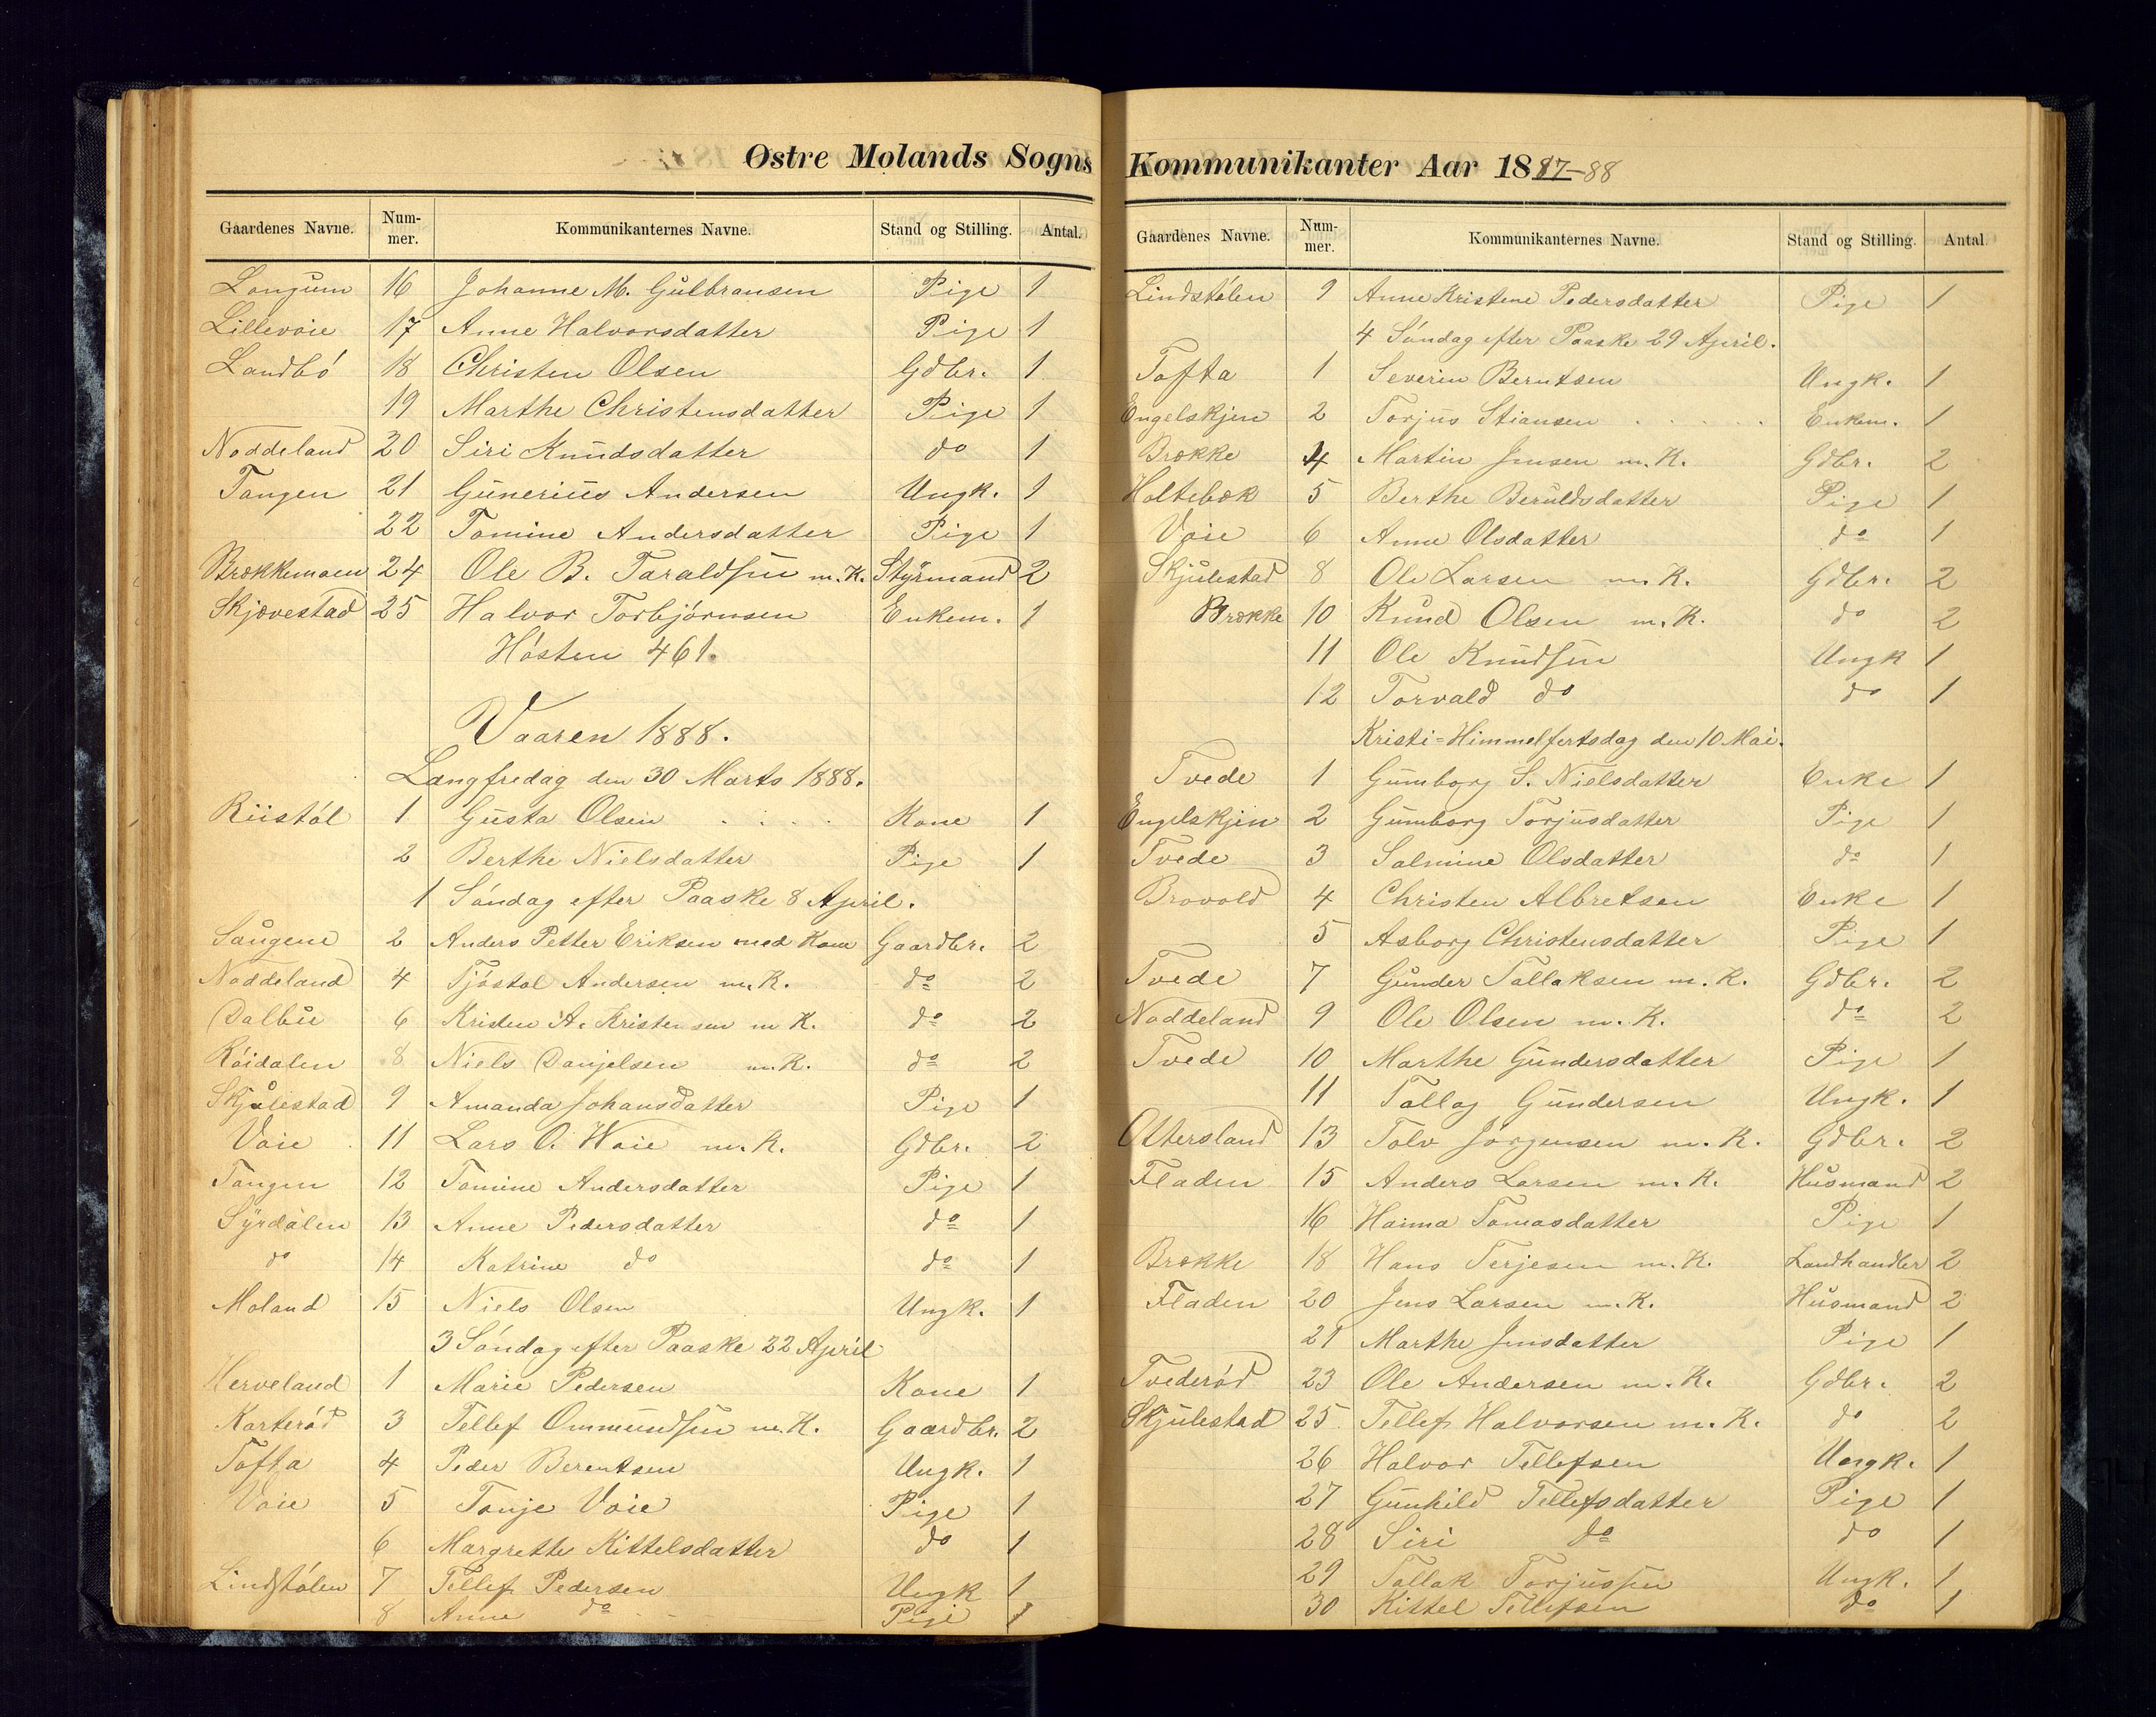 Østre Molands Sogns
Gaardenes Navne. Num-mer. Kommunikanternes Navne. Stand og Stilling. Antal.
Longum 16 Johanne M. Gulbransen Pige 1
Lillevoie 17 Anne Halvorsdatter Pige 1
Landbó 18 Christen Olsen Gdbr. 1
19 Marthe Christensdatter Pige 1
Noddeland 20 Siri Knudsdatter do 1
Tangen 21 Gunerius Andersen Ungk. 1
22 Tomine Andersdatter Pige 1
Brækkemoen 24 Ole B. Taraldsen m. K. Styrmand 2
Skjævestad 25 Halvor Torbjórnsen Enkem. 1
Hósten 461.
Vaaren 1888.
Langfredag den 30 Marts 1888.
Riistól 1 Gusta Olsen Kone 1
2 Berthe Nielsdatter Pige 1
1 Sóndag efter Paaske 8 April.
Saugene 2 Anders Petter Eriksen med Kone Gaardbr. 2
Noddeland 4 Tjóstol Andersen m. K. do 2
Dalbu 6 Kristen A. Kristensen m K. do 2
Róidalen 8 Niels Danjelsen m. K. do 2
Skjulestad 9 Amanda Johansdatter Pige 1
Voie 11 Lars O. Woie m. K. Gdbr. 2
Tangen 12 Tomine Andersdatter Pige 1
Syrdalen 13 Anne Pedersdatter do 1
do 14 Katrine do do 1
Moland 15 Niels Olsen Ungk. 1
3 Sóndag efter Paaske 22 April
Herveland 1 Marie Pedersen Kone 1
Karteród 3 Tellef Ommundsen m. K. Gaardbr. 2
Tofta 4 Peder Berentsen Ungk. 1
Voie 5 Tonje Voie Pige 1
6 Margrethe Kittelsdatter do 1
Lindstólen 7 Tellef Pedersen Ungk 1
8 Anne do Pige 1
Kommunikanter Aar 1887-88
Gaardenes Navne. Num-mer. Kommunikanternes Navne. Stand og Stilling. Antal.
Lindstólen 9 Anne Kristene Pedersdatter Pige 1
4 Sóndag efter Paaske 29 April.
Tofta 1 Severin Berntsen Ungk. 1
Engelskjen 2 Torjus Stiansen Enkem. 1
Brække 4 Martin Jensen m. K. Gdbr. 2
Holtebæk 5 Berthe Beruldsdatter Pige 1
Voie 6 Anne Olsdatter do 1
Skjulestad 8 Ole Larsen m. K. Gdbr. 2
Brække 10 Knud Olsen m. K. do 2
11 Ole Knudsen Ungk 1
12 Torvald do do 1
Kristi=Himmelfertsdag den 10 Mai.
Tvede 1 Gumborg S. Nielsdatter Enke 1
Engelskjen 2 Gumborg Torjusdatter Pige 1
Tvede 3 Salmine Olsdatter do 1
Brovold 4 Christen Albretsen Enke 1
5 Asborg Christensdatter Pige 1
Tvede 7 Gunder Tallaksen m. K. Gdbr. 2
Noddeland 9 Ole Olsen m. K. do 2
Tvede 10 Marthe Gundersdatter Pige 1
11 Tallag Gundersen Ungk. 1
Ottersland 13 Tolv Jorgensen m. K. Gdbr. 2
Fladen 15 Anders Larsen m. K. Husmand 2
16 Hanna Tomasdatter Pige 1
Brække 18 Hans Terjesen m. K. Landhandler 2
Fladen 20 Jens Larsen m. K. Husmand 2
21 Marthe Jensdatter Pige 1
Tvederód 23 Ole Andersen m. K. Gdbr. 2
Skjulestad 25 Tellef Halvorsen m. K. do 2
26 Halvor Tellefsen Ungk. 1
27 Gunhild Tellefsdatter Pige 1
28 Siri do do 1
29 Tallak Torjussen Ungk. 1
30 Kittel Tellefsen do 1